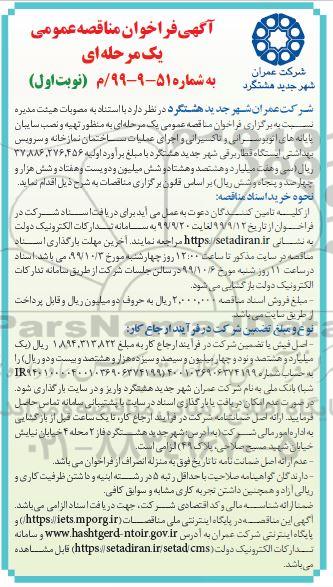 آگهی فراخوان مناقصه عمومی
یک مرحله ای
به شماره ۵۱-۹-۹۹/م (نوبت اول)
شرکت عمران
شهر جدید هشتگرد
شرکت عمران شهر جدید هشتگرد در نظر دارد با استناد به مصوبات هیئت مدیره
نسبت به برگزاری فراخوان مناقصه عمومی یک مرحله ای به منظور تهیه و نصب سایبان
پایانه های اتوبوسرانی و تاکسیرانی و اجرای عملیات ساختمان نمازخانه و سرویس
بهداشتی ایستگاه قطار برقی شهر جدید هشتگرد با مبلغ برآورد اولیه ۳۷,۸۸۶,۲۷۶,۴۵۶
ریال (سی و هفت میلیارد و هشتصد و هشتاد و شش میلیون و دویست و هفتاد و شش هزار و
چهارصد و پنجاه و شش ریال) بر اساس قانون برگزاری مناقصات به شرح ذیل اقدام نماید.
نحوه خرید اسناد مناقصه:
از کلیه تامین کنندگان دعوت به عمل می آید برای دریافت اسناد شرکت در
فراخوان از تاریخ ۹۹/۹/۱۲ لغایت ۹۹/۹/۲۰ به سامانه تدارکات الکترونیک دولت
به نشانی https://setadiran.ir مراجعه نمایند. آخرین مهلت بارگذاری اسناد
مناقصه در سایت مذکور تا ساعت ۱۲:۰۰ روز چهارشنبه مورخ ۹۹/۱۰/۳ می باشد. اسناد
در ساعت ۱۱ روز شنبه مورخ ۹۹/۱۰/۶ در سالن جلسات شرکت از طریق سامانه تدارکات
الکترونیک دولت بازگشایی می شود.
- مبلغ فروش اسناد مناقصه ۲,۰۰۰,۰۰۰ ریال به حروف دو میلیون ریال و قابل پرداخت
از طریق سایت می باشد.
نوع و مبلغ تضمین شرکت در فرآیند ارجاع کار:
- اصل فیش یا تضمین شرکت در فرآیند ارجاع کار به مبلغ ۱,۸۹۴,۳۱۳,۸۲۲ ریال (یک
میلیارد و هشتصد و نود و چهار میلیون و سیصد و سیزده هزار و هشتصد و بیست و دو ریال) را
به حساب شماره
شبا) بانک ملی به نام شرکت عمران شهر جدید هشتگرد واریز و در سایت بارگذاری شود.
در صورت عدم امکان دریافت یا بارگذاری اسناد در سایت با پشتیبانی سامانه تماس حاصل
فرمایید. ارائه اصل ضمانتنامه شرکت در فرآیند ارجاع کار، تا یک ساعت قبل از بازگشایی
به اداره امور مالی شرکت (به آدرس: شهر جدید هشتگرد فاز ۲ محله ۴ خیابان نیایش
خیابان شهید مسیح صلاحی، پلاک ۴۹) الزامی است.
- عدم ارائه اصل ضمانت نامه تا تاریخ فوق به منزله انصراف از فراخوان می باشد.
- دارندگان گواهینامه صلاحیت با حداقل رتبه ۵ در رشته ابنیه و داشتن ظرفیت کاری و
ریالی آزاد و همچنین داشتن تجربه کاری مشابه و سوابق کافی.
ضمنا ارائه شناسه ملی و کد اقتصادی شرکت، جهت دریافت اسناد الزامی می باشد.
آگهی این مناقصه در پایگاه اینترنتی ملی مناقصات (https://iets.mporg.ir/) و
پایگاه اینترنتی شرکت عمران به آدرس www.hashtgerd-ntoir.gov.ir و سامانه
تدارکات الکترونیک دولت (https://setadiran.ir/setad/cms) قابل مشاهده
می باشد.